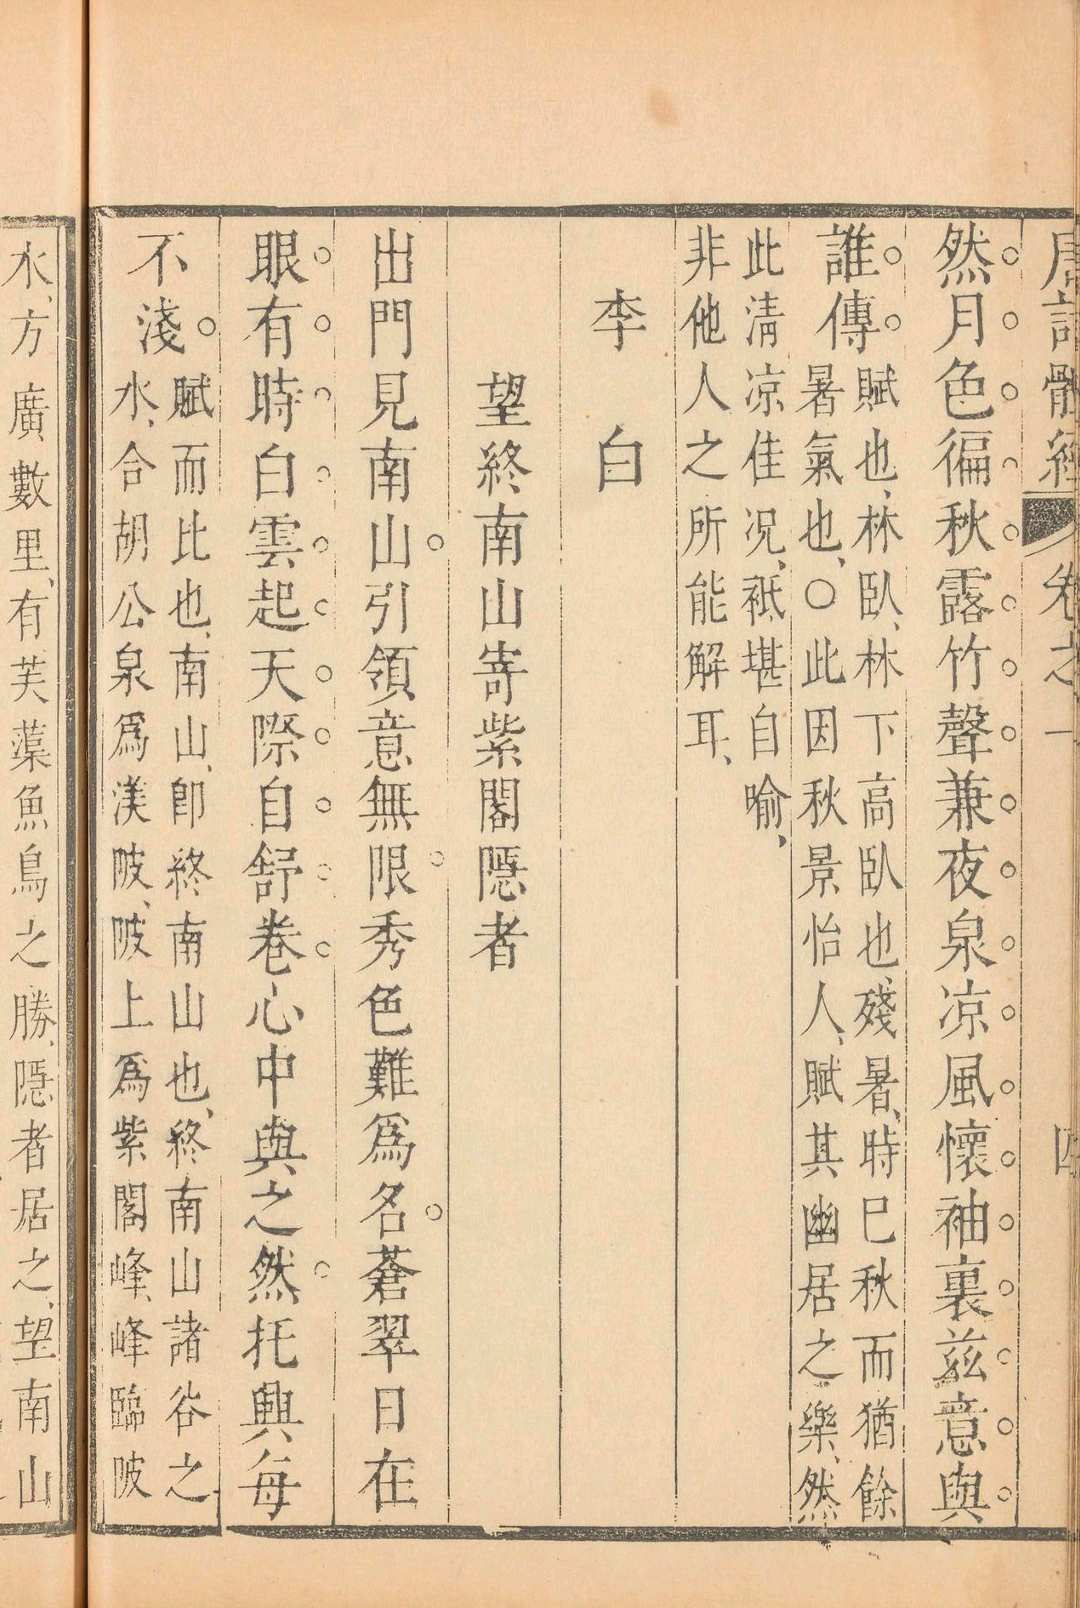 唐詩體經 卷之一 四
然月色徧秋露竹聲兼夜泉凉風懷袖裏茲意與
誰傳
賦也、林臥、林下高臥也、殘暑、時巳秋而猶餘
暑氣也、○此因秋景怡人、賦其幽居之樂、然
此清凉佳况、袛堪自喻、
非他人之所能解耳、
李白
望終南山寄紫閣隱者
出門見南山引領意無限秀色難爲名蒼翠日在
眼有時白雲起天際自舒卷心中與之然托興每
不淺
賦而比也、南山、卽終南山也、終南山諸谷之
水、合胡公泉爲渼陂、陂上爲紫閣峰、峰臨陂
水、方廣數里、有芙蕖魚鳥之勝、隱者居之、望南山